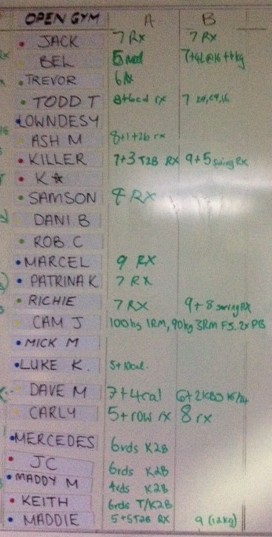 OPEN GYM A B
JACK 7 Rx 7 Rx
BEL 5 mod
TREVOR
TODD T rx 7
LOWNDESY
ASH M 8+1+2b rx
KILLER 7+3 T2B RX 9+5 swing RX
K☆
SAMSON 8 RX
DANI B
ROB. C
MARCEL 9 RX
PATRINA K 7 RX
RICHIE 7 RX 9+8 swing RX
CAM J 100kg 1RM, 90kg 3RM FS. 2x PB
MICK M
LUKE K. 5+10cal
DAVE M 7+4cal
CARLY 5+row rx 8 rx
MERCEDES 6rds K2B
JC 6rds K2B
MADDY M 4rds K2B
KEITH 6rds T/K2B
MADDIE 5+5T2B RX 9 (12kg)